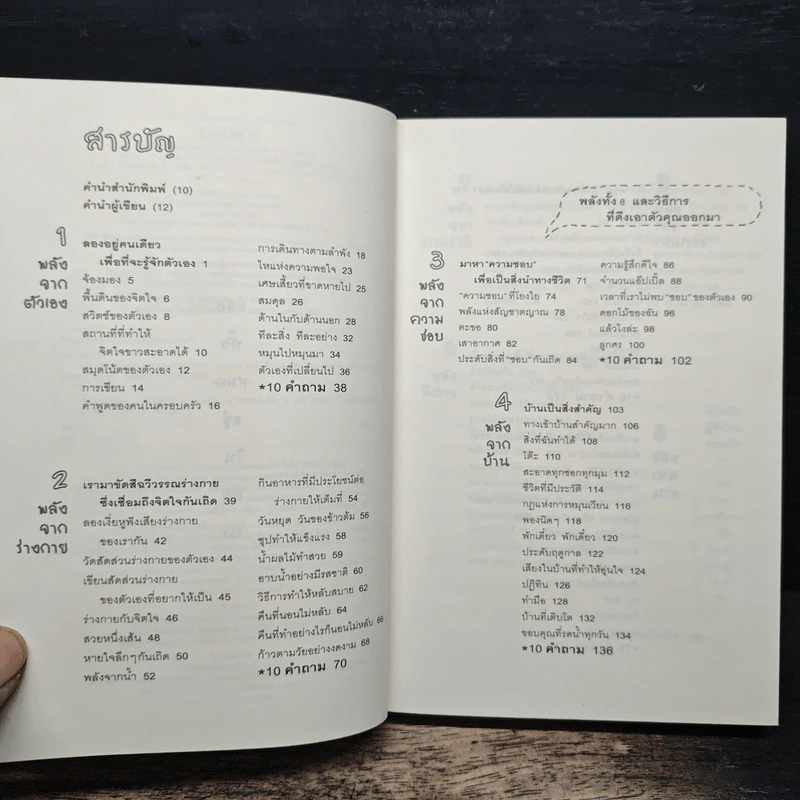 สารบัญ
คำนำสำนักพิมพ์ (10)
คำนำผู้เขียน (12)
1
พลัง
จาก
ตัวเอง
ลองอยู่คนเดียว
เพื่อที่จะรู้จักตัวเอง 1
จ้องมอง 5
พื้นดินของจิตใจ 6
สวิตช์ของตัวเอง 8
สถานที่ที่ทำให้
จิตใจขาวสะอาดได้ 10
สมุดโน้ตของตัวเอง 12
การเขียน 14
คำพูดของคนในครอบครัว 16
การเดินทางตามลำพัง 18
ไหแห่งความพอใจ 23
เศษเสี้ยวที่ขาดหายไป 25
สมดุล 26
ด้านในกับด้านนอก 28
ทีละสิ่ง ทีละอย่าง 32
หมุนไปหมุนมา 34
ตัวเองที่เปลี่ยนไป 36
*10 คำถาม 38
2
พลัง
จาก
ร่างกาย
เรามาขัดสีฉวีวรรณร่างกาย
ซึ่งเชื่อมถึงจิตใจกันเถิด 39
ลองเงี่ยหูฟังเสียงร่างกาย
ของเรากัน 42
วัดสัดส่วนร่างกายของตัวเอง 44
เขียนสัดส่วนร่างกาย
ของตัวเองที่อยากให้เป็น 45
ร่างกายกับจิตใจ 46
สวยหนึ่งเส้น 48
หายใจลึกๆกันเถิด 50
พลังจากน้ำ 52
กินอาหารที่มีประโยชน์ต่อ
ร่างกายให้เต็มที่ 54
วันหยุด วันของข้าวต้ม 56
ซุปทำให้แข็งแรง 58
น้ำผลไม้ทำสวย 59
อาบน้ำอย่างมีรสชาติ 60
วิธีการทำให้หลับสบาย 62
คืนที่นอนไม่หลับ 64
คืนที่ทำอย่างไรก็นอนไม่หลับ 66
ก้าวตามวัยอย่างงดงาม 68
*10 คำถาม 70
พลังทั้ง 8 และวิธีการ
ที่ดึงเอาตัวคุณออกมา
3
พลัง
จาก
ความ
ชอบ
มาหา "ความชอบ"
เพื่อเป็นสิ่งนำทางชีวิต 71
"ความชอบ" ที่โยงใย 74
พลังแห่งสัญชาตญาณ 78
ตะขอ 80
เสาอากาศ 82
ประดับสิ่งที่ "ชอบ" กันเถิด 84
ความรู้สึกดีใจ 86
จำนวนแอ๊ปเปิ้ล 88
เวลาที่เราไม่พบ "ชอบ" ของตัวเอง 90
ดอกไม้ของฉัน 96
แล้วไงล่ะ 98
ลูกศร 100
*10 คำถาม 102
4
พลัง
จาก
บ้าน
บ้านเป็นสิ่งสำคัญ 103
ทางเข้าบ้านสำคัญมาก 106
สิ่งที่ฉันทำได้ 108
โต๊ะ 110
สะอาดทุกซอกทุกมุม 112
ชีวิตที่มีประวัติ 114
กฎแห่งการหมุนเวียน 116
พองนิดๆ 118
พักเดี๋ยว พักเดี๋ยว 120
ประดับฤดูกาล 122
เสียงในบ้านที่ทำให้อุ่นใจ 124
ปฏิทิน 126
ทำมือ 128
บ้านที่เติบโต 132
ขอบคุณที่รดน้ำทุกวัน 134
*10 คำถาม 136